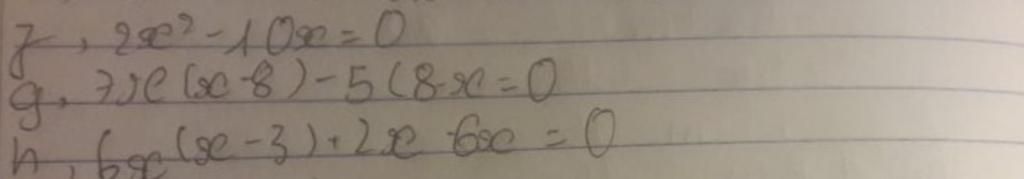 f, 2x² - 10x = 0
g, 7x(x-8) - 5(8-x = 0
h, 6x(x-3) + 2x - 6x = 0